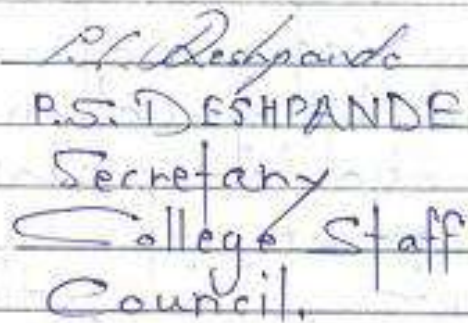 P.S. Deshpande
P.S. DESHPANDE
Secretary
College Staff
Council.